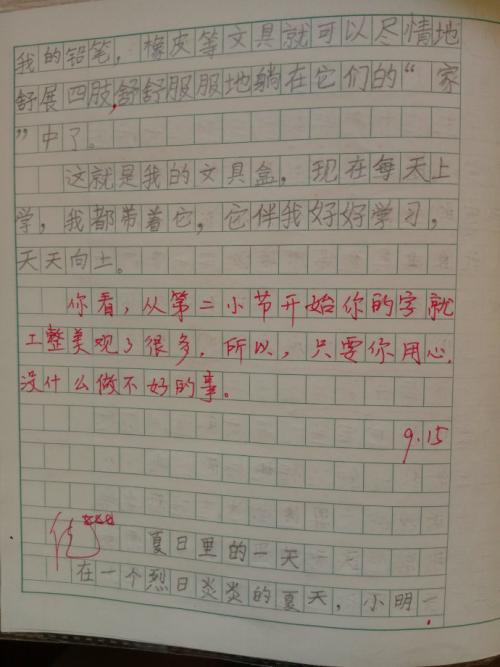 我的铅笔，橡皮等文具就可以尽情地
舒展四肢，舒舒服服地躺在它们的“家
”中了。
这就是我的文具盒，现在每天上
学，我都带着它，它伴我好好学习，
天天向上。
你看，从第二小节开始你的字就
工整美观了很多，所以，只要你用心，
没什么做不好的事。
9.15
优
夏日里的一天
在一个烈日炎炎的夏天，小明一